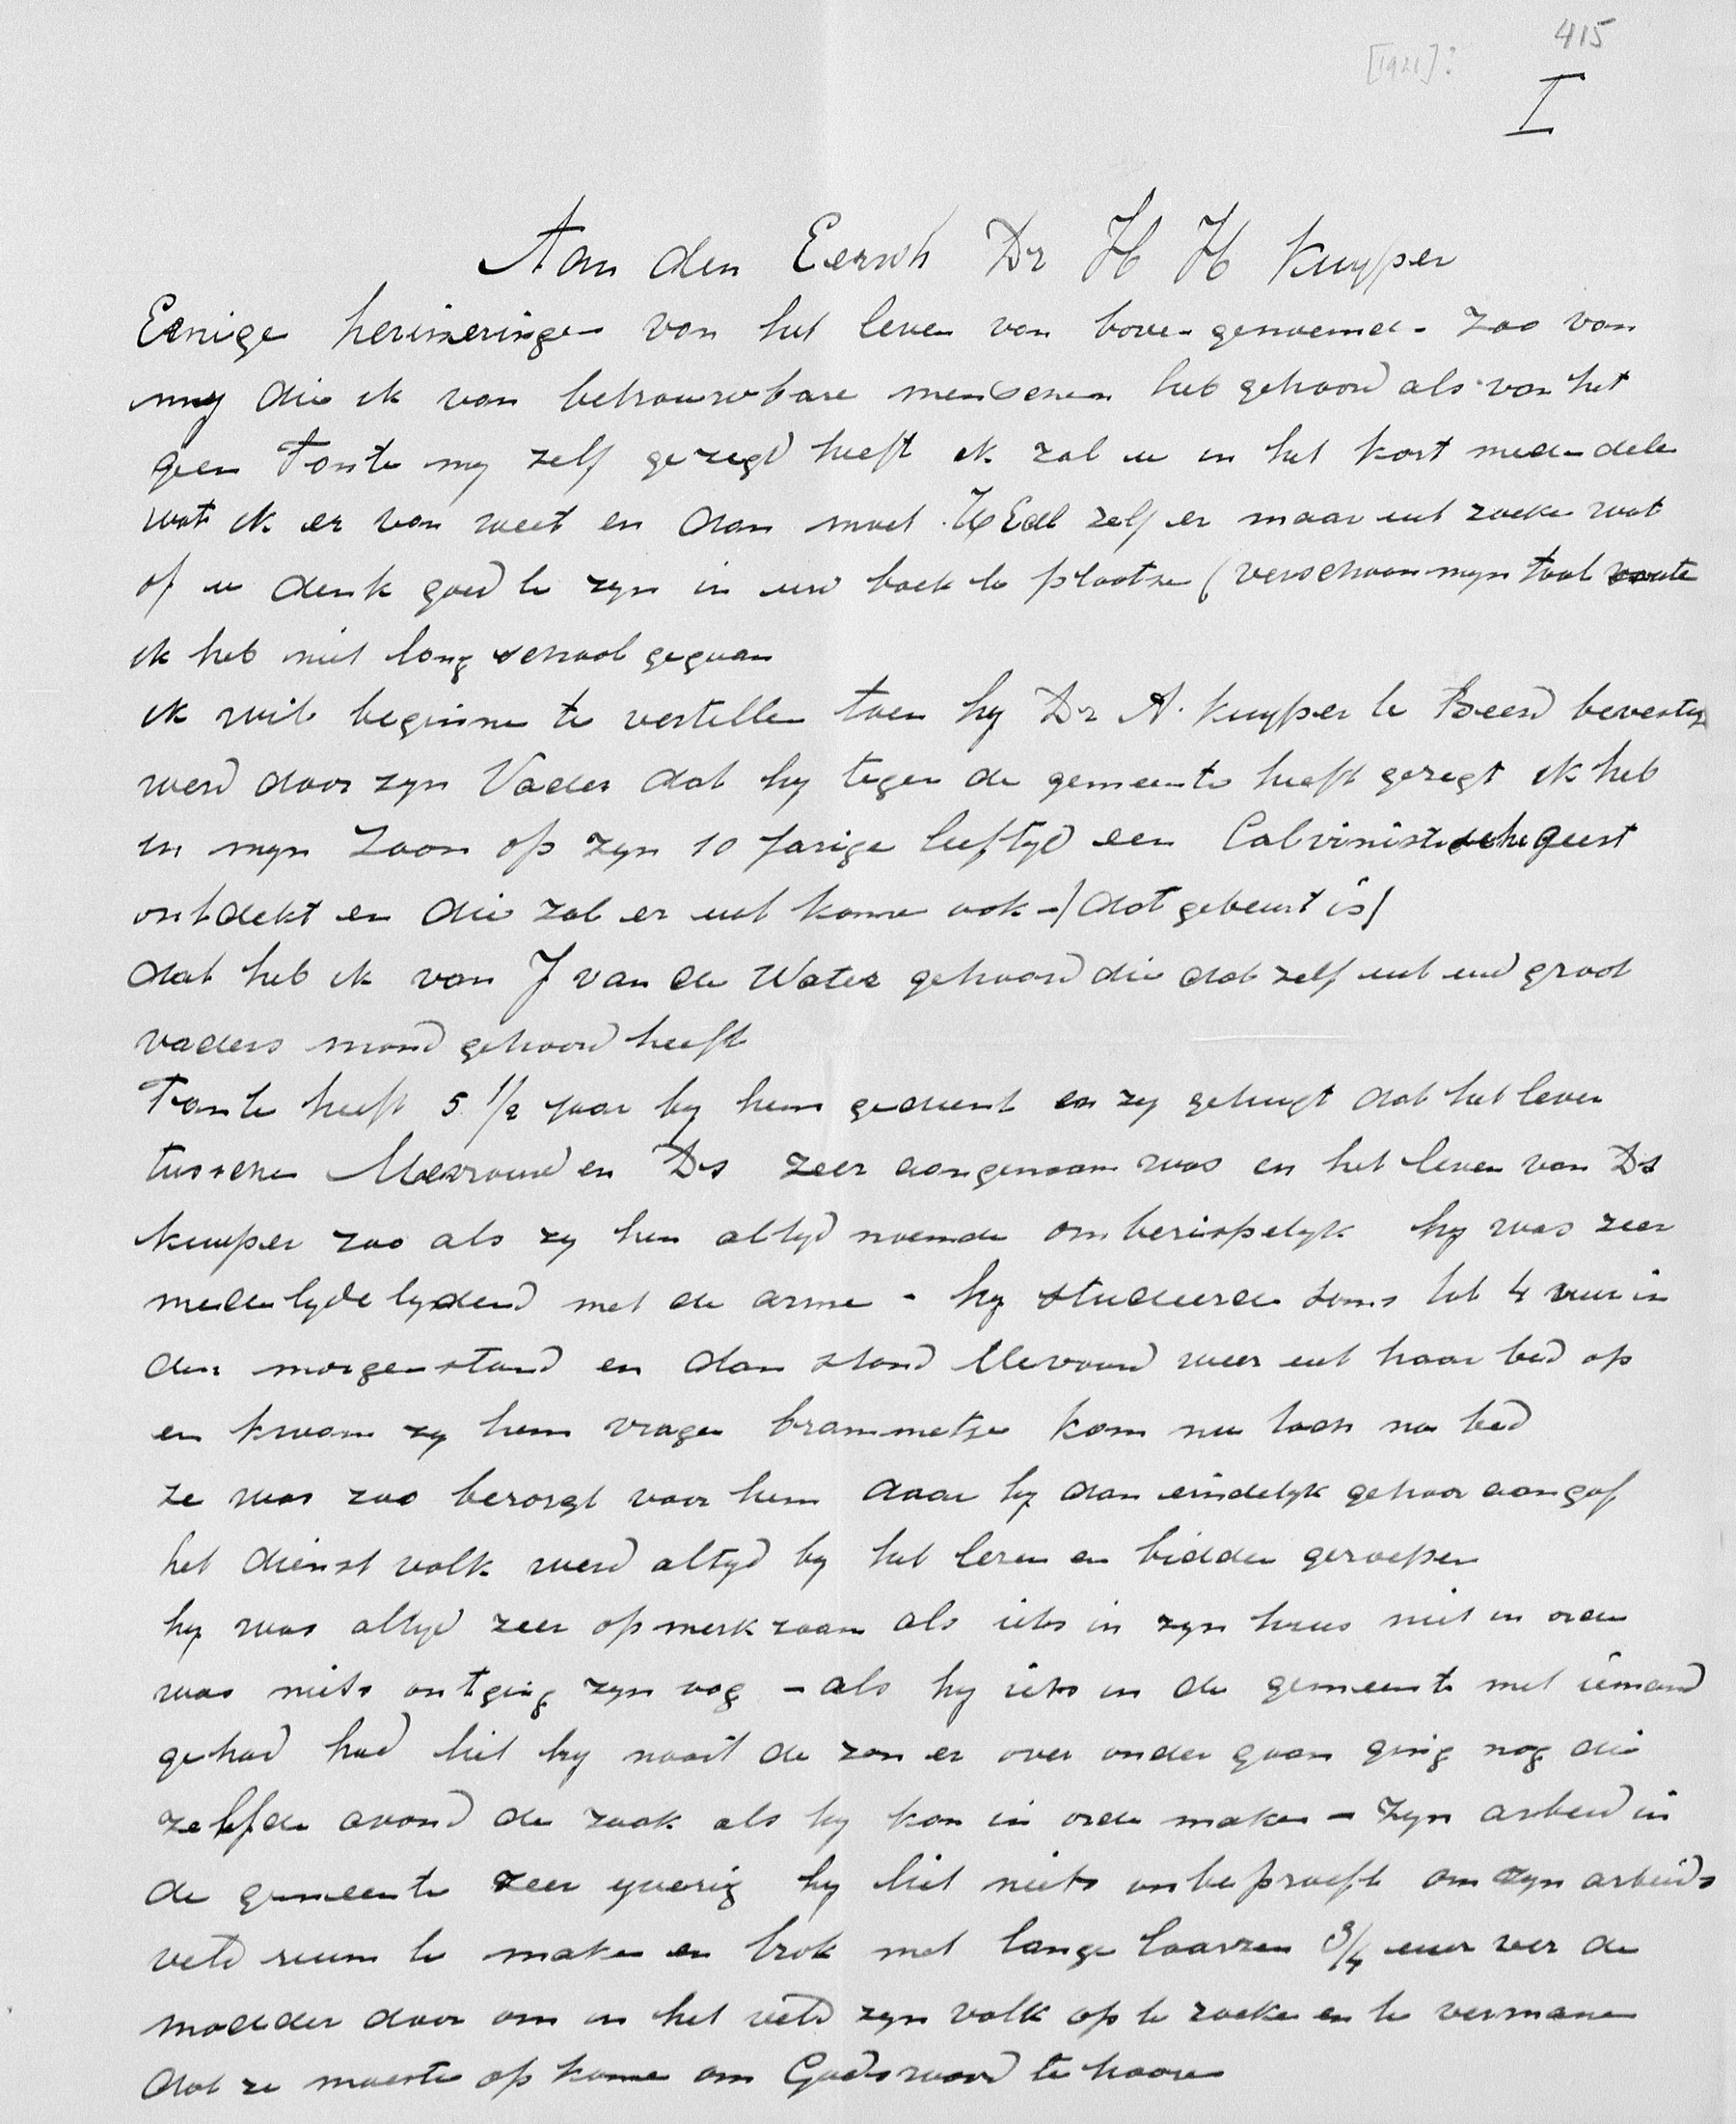 415
[1921]?
I
Aan den Eerwh Dr H H Kuyper
Eenige herineringen van het leven van bove-genoemde zoo van
my die ik van betrouwbare mensenen heb gehoord als van het
geen Tante my zelf gezegd heeft ik zal u in het kort mededele
wat ik er van weet en dan moet UEdl zelf er maar uit zoeke wat
of u denk goed te zyn in uw boek te plaatse (verschoon mijn taal voute
ik heb niet lang school gegaan
ik wil beginne te vertellen toen hy Dr A. Kuyper te Beesd bevestig
werd door zyn Vader dat hy tegen de gemeente heeft gezegt ik heb
in myn Zoon op zyn 10 jarige leeftyd een Calvinistische geest
ontdekt en die zal er uit kome ook - (dat gebeurt is)
dat heb ik van J van de Water gehoord die dat zelf uit uw groot
vaders mond gehoord heeft
Tante heeft 5 1/2 jaar by hem gedient en zy getuigt dat het leven
tussche Mevrouw en Ds zeer aangenaam was en het leven van Ds
Kuyper zoo als zy hem altyd noemde onberispelyk hy was zeer
medelyde lydend met de arme - hy studeerde soms tot 4 uur in
den morgenstond en dan stond Mevrouw weer uit haar bed op
en kwam zy hem vragen brammetje kom nu toch na bed
ze was zoo bezorgt voor hem daar hy dan eindelyk gehoor aan gaf
het dienst volk werd altyd by het lezen en bidden geroepen
hy was altyd zeer opmerkzaam als iets in zyn huis niet in orde
was niets ontging zyn oog - als hy iets in de gemeente met iemand
gehad had liet hy nooit de zon er over onder gaan ging nog die
zelfde avond de zaak als hy kon in orde maken - zyn arbeid in
de gemeente zeer yverig hy liet niets onbeproeft om zyn arbeids
veld ruim te maken en trok met lange laarzen 3/4 uur ver de
modder door om in het veld zyn volk op te zoeke en te vermane
dat ze moeste op kome om Godswoord te hoore